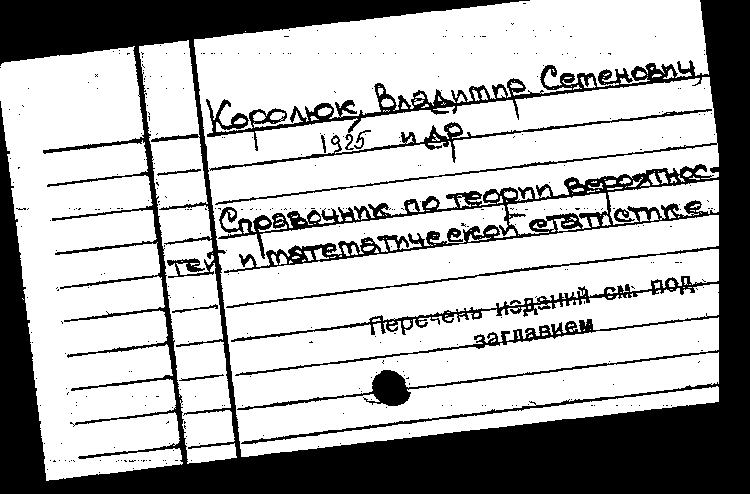 Королюк, Владимир Семенович,
1925 и др.
Справочник по теории вероятнос-
тей и математической статистике
Перечень изданий см. под
заглавием